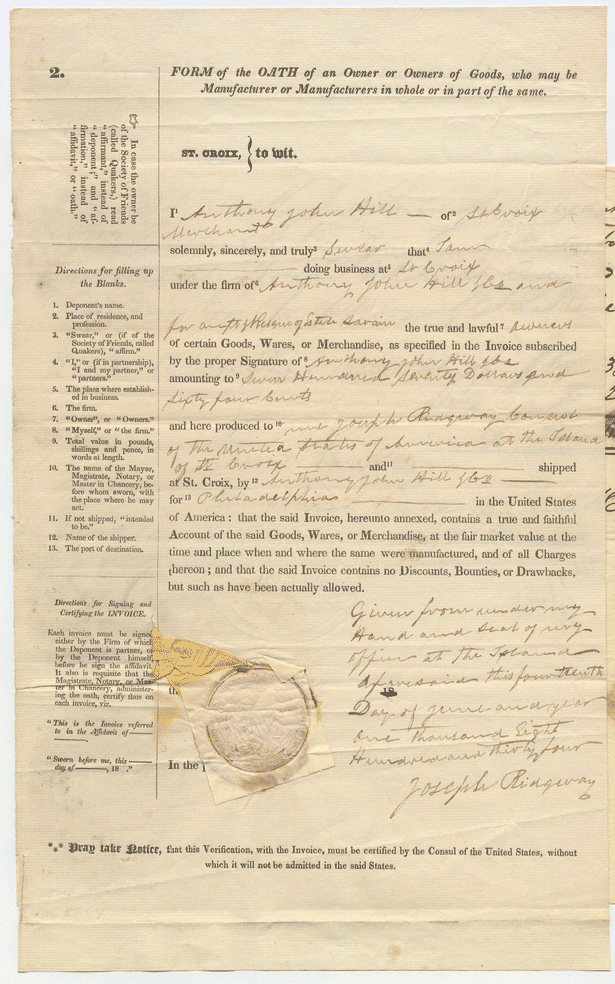 2.
FORM of the OATH of an Owner or Owners of Goods, who may be
Manufacturer or Manufacturers in whole or in part of the same.
In case the owner be
of the Society of Friends
(called Quakers,) read
"affirmant," instead of
"deponent;" and "af-
firmation," instead of
"affidavit," or "oath."
ST. CROIX, } to wit.
I¹ Anthony John Hill — of² St Croix
Merchant
solemnly, sincerely, and truly³ Swear that⁴ I am
doing business at⁵ St Croix
under the firm of⁶ Anthony John Hill & Co and
the true and lawful⁷ owners
of certain Goods, Wares, or Merchandise, as specified in the Invoice subscribed
by the proper Signature of⁸ Anthony John Hill & Co
amounting to⁹ Seven Hundred Seventy Dollars and
Sixty four Cents
and here produced to¹⁰ me Joseph Ridgway Consul
of the United States of America at the Island
of St Croix and¹¹ shipped
at St. Croix, by¹² Anthony John Hill & Co
for¹³ Philadelphia in the United States
of America: that the said Invoice, hereunto annexed, contains a true and faithful
Account of the said Goods, Wares, or Merchandise, at the fair market value at the
time and place when and where the same were manufactured, and of all Charges
thereon; and that the said Invoice contains no Discounts, Bounties, or Drawbacks,
but such as have been actually allowed.
Given from under my
Hand and Seal of my
office at the Island
aforesaid this fourteenth
18
Day of June and year
One thousand Eight
Hundred and thirty four
Joseph Ridgway
th
In the p
Directions for filling up
the Blanks.
1. Deponent's name.
2. Place of residence, and
profession.
3. "Swear," or (if of the
Society of Friends, called
Quakers), "affirm."
4. "I," or (if in partnership),
"I and my partner," or
"partners."
5. The place where establish-
ed in business.
6. The firm.
7. "Owner", or "Owners."
8. "Myself," or "the firm."
9. Total value in pounds,
shillings and pence, in
words at length.
10. The name of the Mayor,
Magistrate, Notary, or
Master in Chancery, be-
fore whom sworn, with
the place where he may
act.
11. If not shipped, "intended
to be."
12. Name of the shipper.
13. The port of destination.
Directions for Signing and
Certifying the INVOICE.
Each invoice must be signed
either by the Firm of which
the Deponent is partner, or
by the Deponent himself,
before he sign the affidavit.
It also is requisite that the
Magistrate, Notary, or Mas-
ter in Chancery, administer-
ing the oath, certify thus on
each invoice, viz.
"This is the Invoice referred
to in the Affidavit of ———
———
"Sworn before me, this ———
day of ———, 18 ."
*** Pray take Notice, that this Verification, with the Invoice, must be certified by the Consul of the United States, without
which it will not be admitted in the said States.